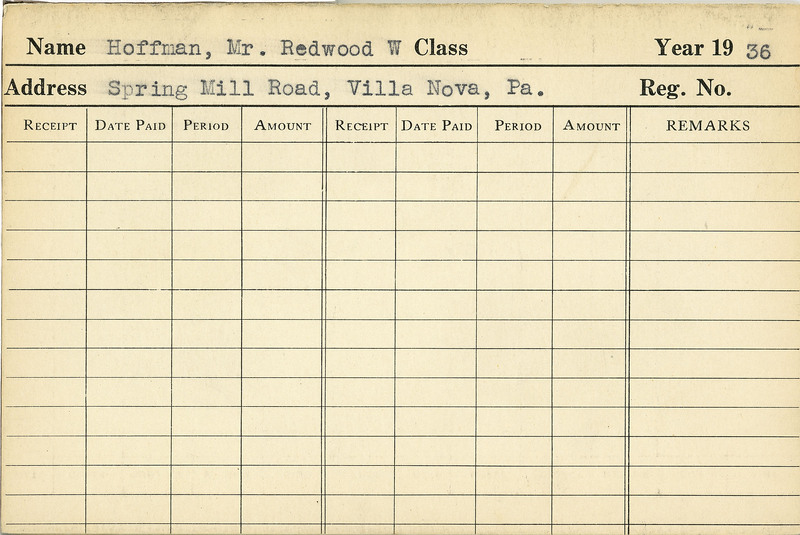 Name Hoffman, Mr. Redwood W Class Year 19 36
Address Spring Mill Road, Villa Nova, Pa. Reg. No.
RECEIPT DATE PAID PERIOD AMOUNT RECEIPT DATE PAID PERIOD AMOUNT REMARKS